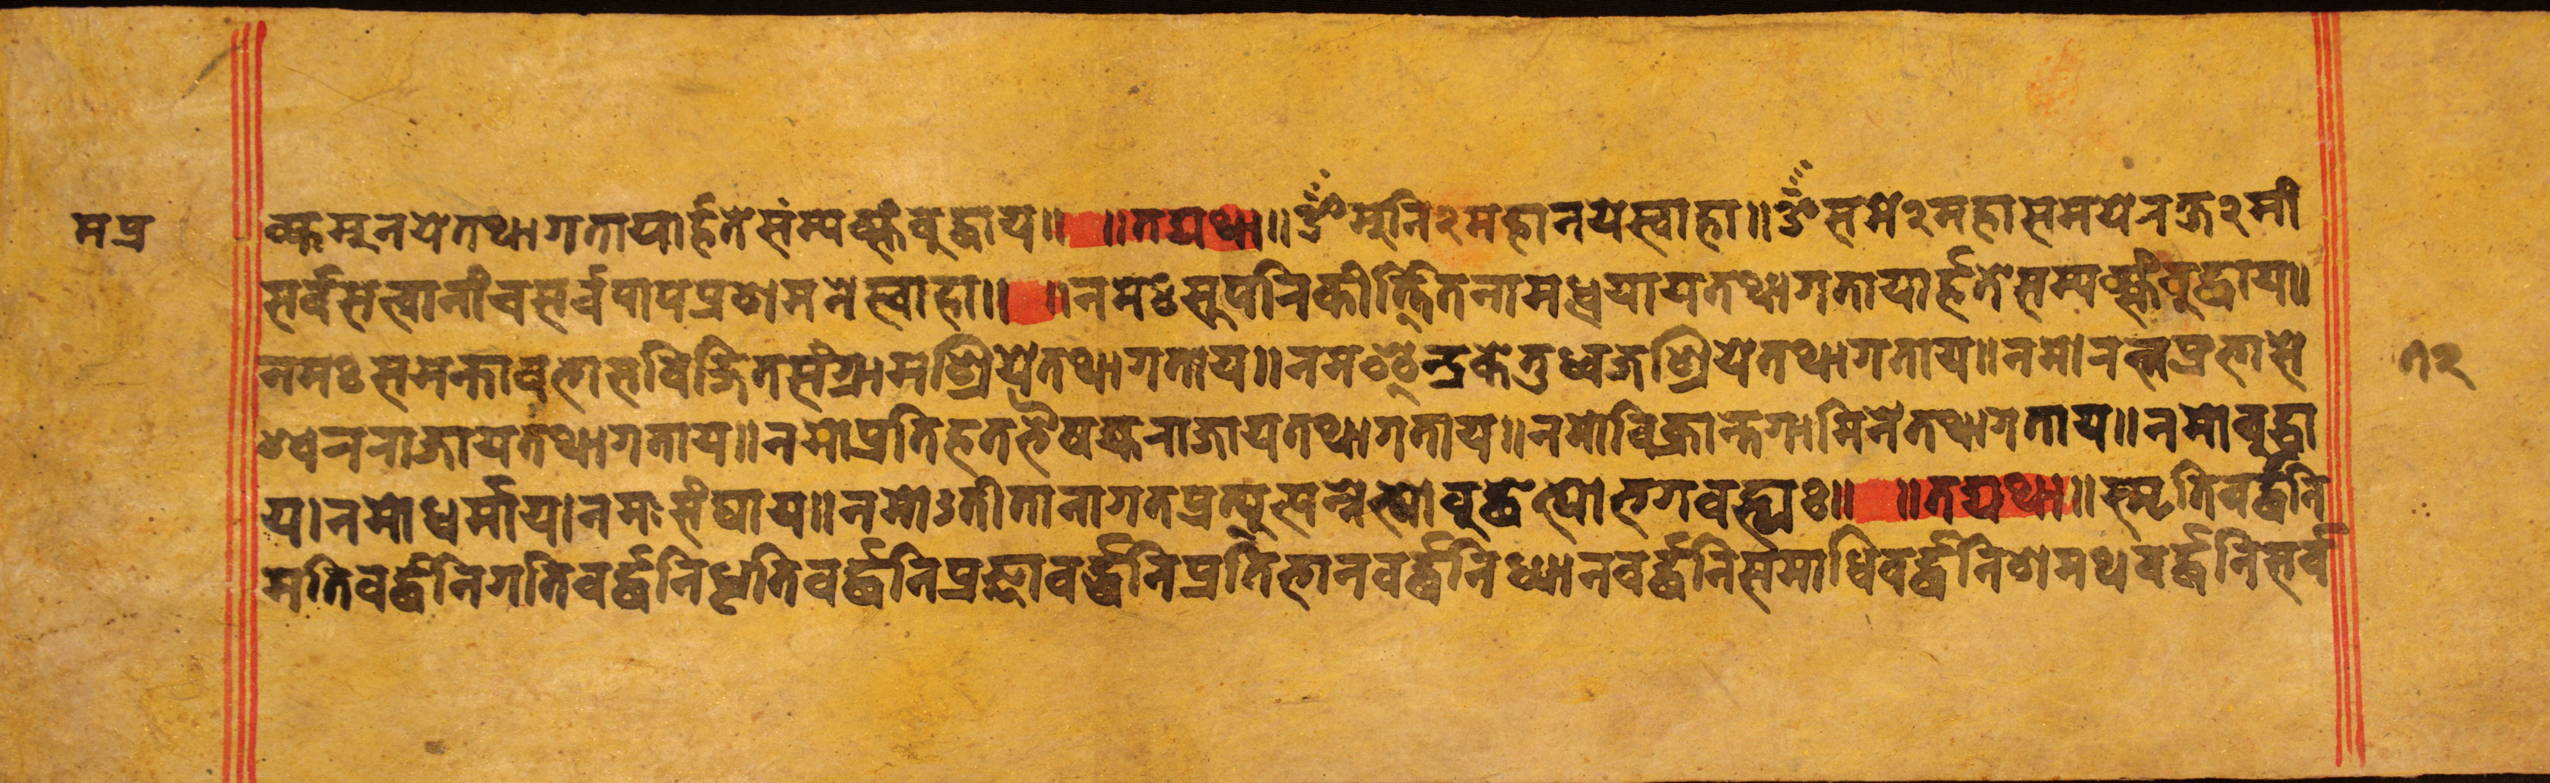 मप्र
क्यमुनयेतथागतायार्हतेसंम्यक्संबुद्धाय॥ ॥तद्यथा॥ॐमुनि२महानयेस्वाहा॥ॐसमे२महासमयेरक्ष२मां
सर्वसत्वानांचसर्वपापप्रशमनेस्वाहा॥ ॥नमःसुपरिकीर्त्तितनामध्रेयायतथागतायार्हतेसम्यक्संबुद्धाय॥
नमःसमन्तावभासविजितसंग्रामश्रियेतथागताय॥नमइन्द्रकेतुध्वजश्रियेतथागताय॥नमोरत्नप्रभासे
श्वरराजायतथागताय॥नमोप्रतिहतभैषज्यराजायतथागताय॥नमोविक्रान्तगामिनेतथागताय॥नमोबुद्धा
य।नमोधर्माय।नमःसंघाय॥नमोऽतीतानागतप्रत्युत्पन्नेभ्योबुद्धेभ्योभगवद्भ्यः॥ ॥तद्यथा॥स्मृतिवर्द्धनि
मतिवर्द्धनिगतिवर्द्धनिधृतिवर्द्धनिप्रज्ञावर्द्धनिप्रतिभानवर्द्धनिध्यानवर्द्धनिसमाधिवर्द्धनिशमथवर्द्धनिसर्व